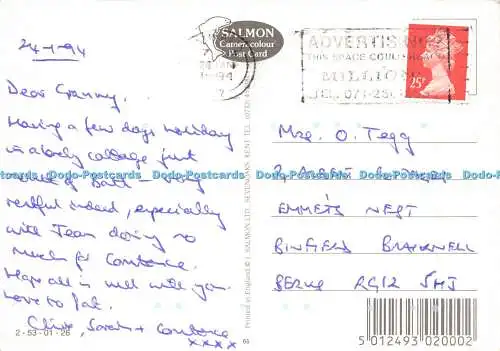 24-1-94
SALMON
Cameracolour
Post Card
24 JAN
ADVERTISING
THIS SPACE COULD REACH
MILLIONS
TEL. 071-250
25P
Dear Granny,
Having a few days holiday
in a lovely cottage just
outside of Bath – very
restful indeed, especially
with Jean doing so
much for Constance.
Hope all is well with you.
Love to Pat.
Clive, Sarah + Constance
xxxx
2-53-01-26
66
Printed in England © J. SALMON LTD., SEVENOAKS, KENT. TEL.
Mrs. O. Tegg
EMMETS NEST
BINFIELD BRACKNELL
BERKS RG12 5HJ
5 012493 020002
Dodo-Postcards Dodo-Postcards Dodo-Postcards Dodo-Postcards Dodo-Postcards Dodo-Postcards